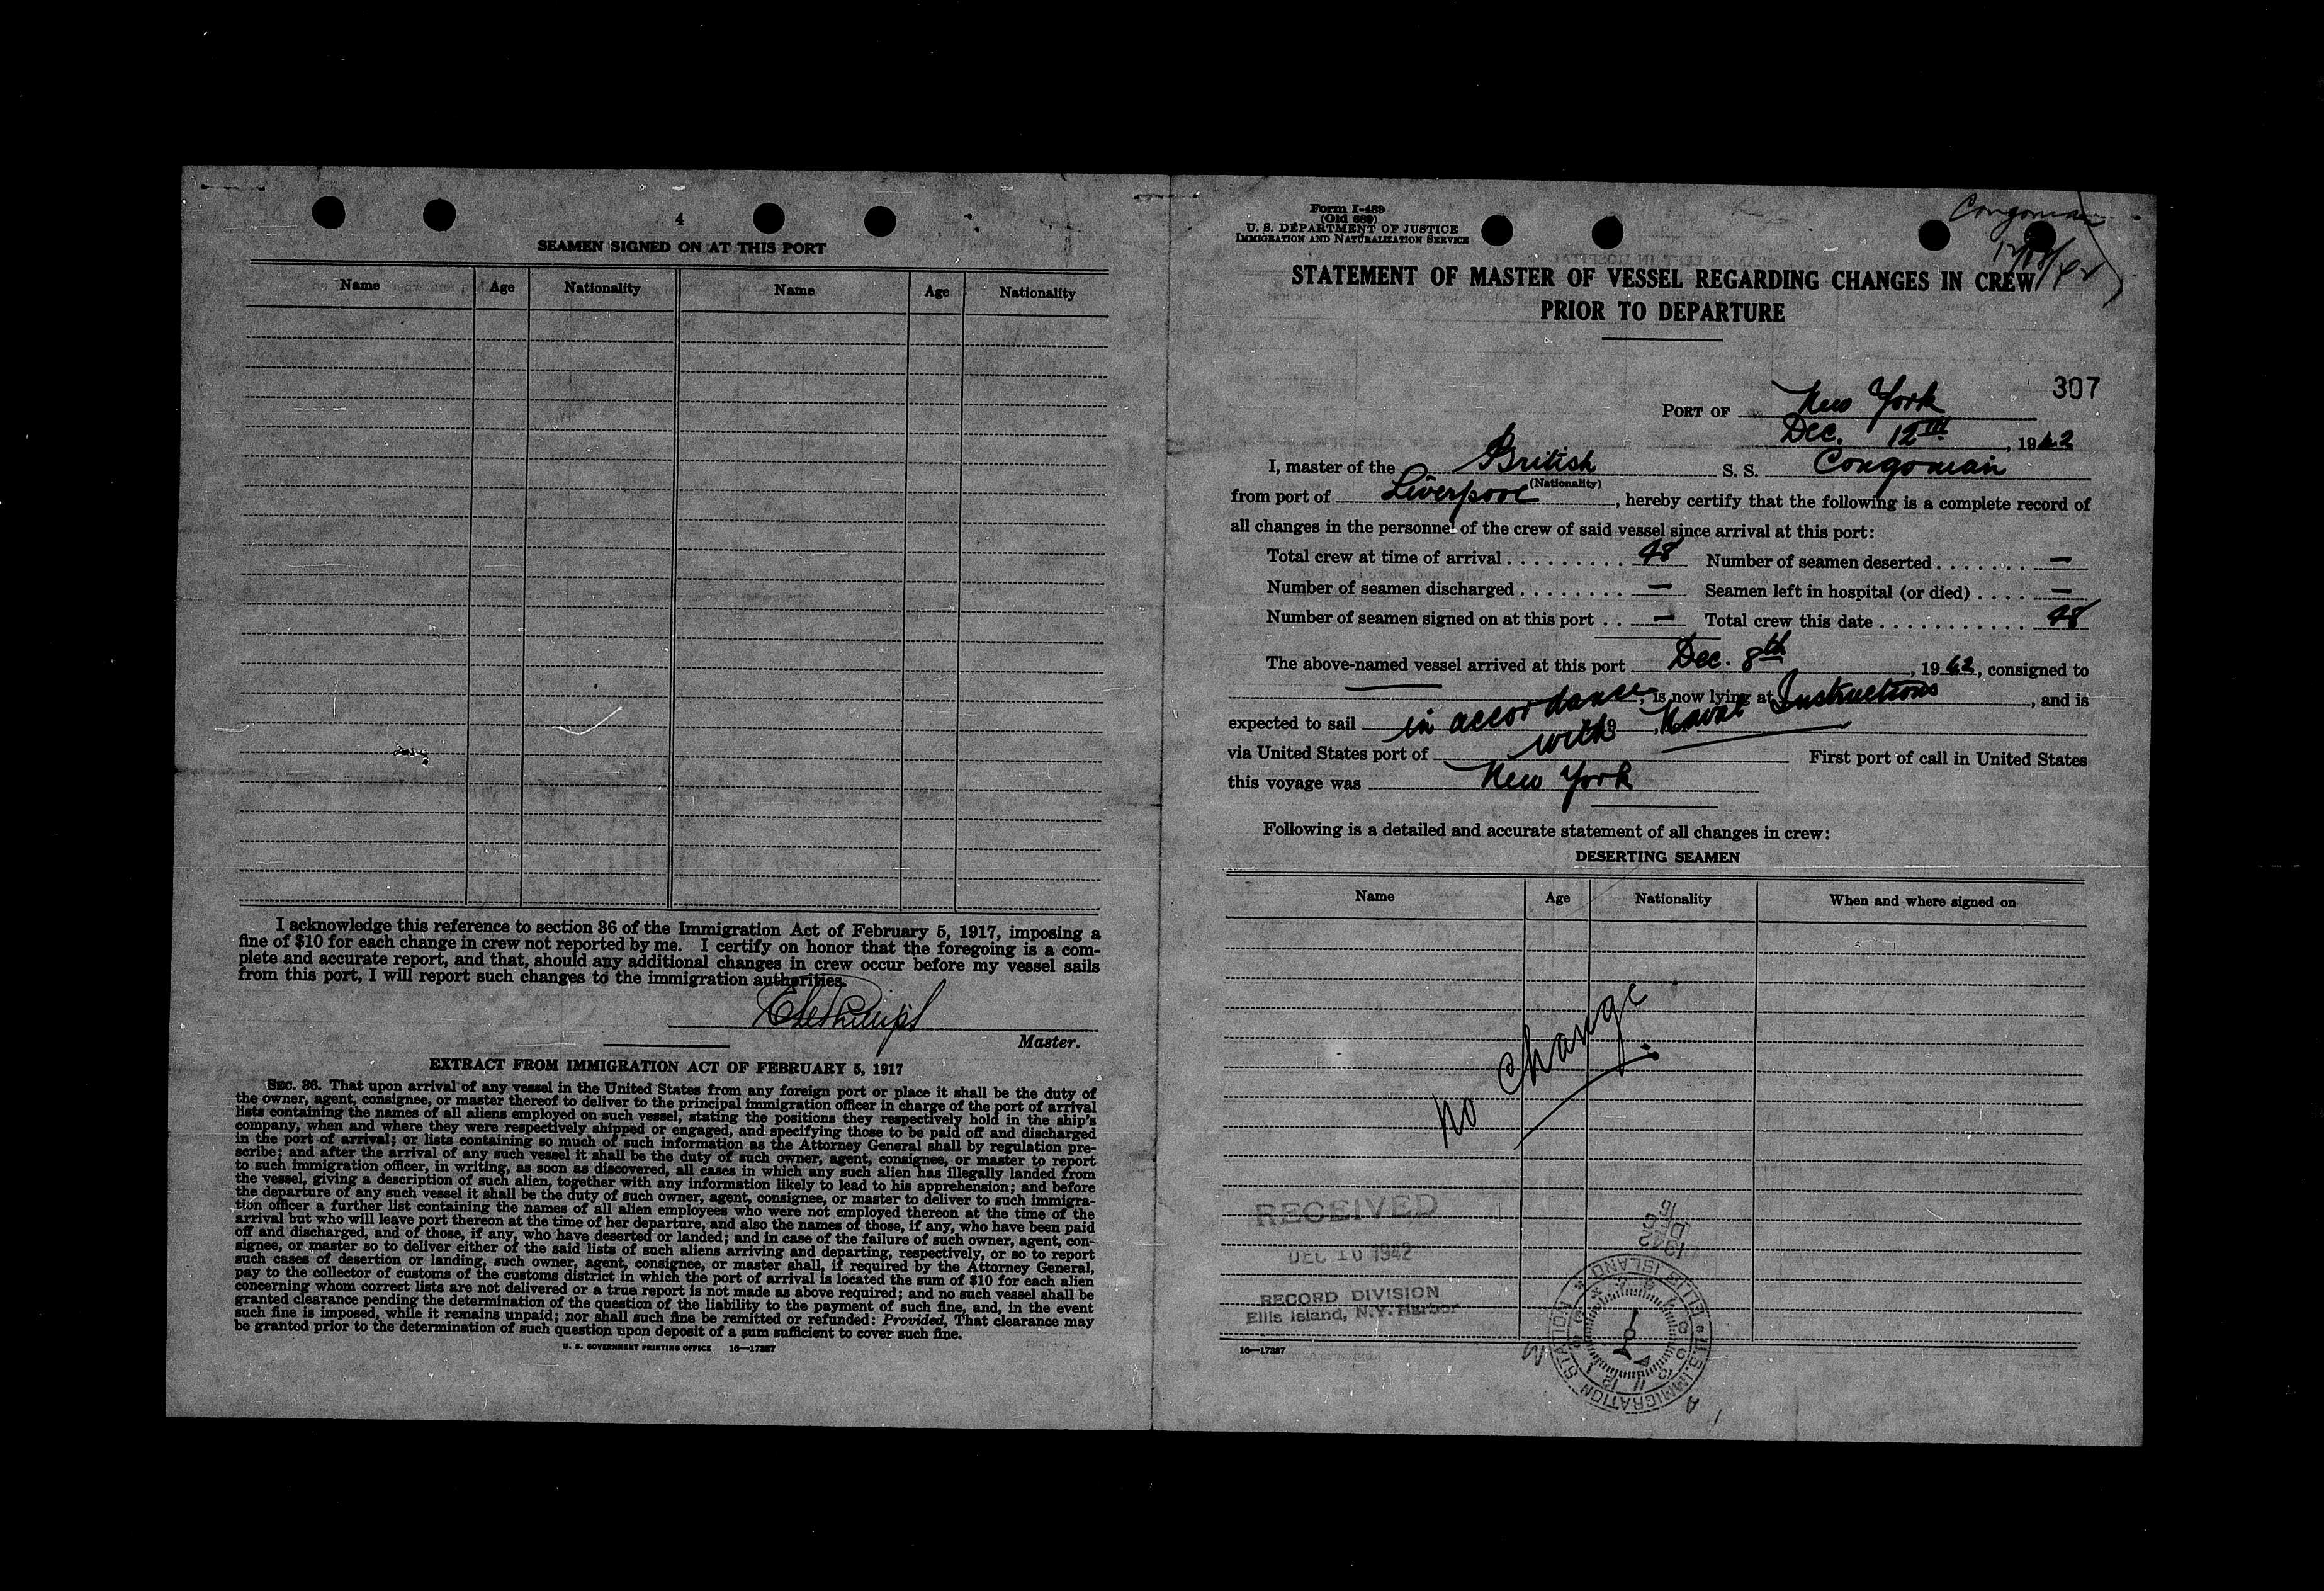 4
SEAMEN SIGNED ON AT THIS PORT
Name Age Nationality Name Age Nationality
I acknowledge this reference to section 36 of the Immigration Act of February 5, 1917, imposing a
fine of $10 for each change in crew not reported by me. I certify on honor that the foregoing is a com-
plete and accurate report, and that, should any additional changes in crew occur before my vessel sails
from this port, I will report such changes to the immigration authorities.
Master.
EXTRACT FROM IMMIGRATION ACT OF FEBRUARY 5, 1917
SEC. 36. That upon arrival of any vessel in the United States from any foreign port or place it shall be the duty of
the owner, agent, consignee, or master thereof to deliver to the principal immigration officer in charge of the port of arrival
lists containing the names of all aliens employed on such vessel, stating the positions they respectively hold in the ship's
company, when and where they were respectively shipped or engaged, and specifying those to be paid off and discharged
in the port of arrival; or lists containing so much of such information as the Attorney General shall by regulation pre-
scribe; and after the arrival of any such vessel it shall be the duty of such owner, agent, consignee, or master to report
to such immigration officer, in writing, as soon as discovered, all cases in which any such alien has illegally landed from
the vessel, giving a description of such alien, together with any information likely to lead to his apprehension; and before
the departure of any such vessel it shall be the duty of such owner, agent, consignee, or master to deliver to such immigra-
tion officer a further list containing the names of all alien employees who were not employed thereon at the time of the
arrival but who will leave port thereon at the time of her departure, and also the names of those, if any, who have been paid
off and discharged, and of those, if any, who have deserted or landed; and in case of the failure of such owner, agent, con-
signee, or master so to deliver either of the said lists of such aliens arriving and departing, respectively, or so to report
such cases of desertion or landing, such owner, agent, consignee, or master shall, if required by the Attorney General,
pay to the collector of customs of the customs district in which the port of arrival is located the sum of $10 for each alien
concerning whom correct lists are not delivered or a true report is not made as above required; and no such vessel shall be
granted clearance pending the determination of the question of the liability to the payment of such fine, and, in the event
such fine is imposed, while it remains unpaid; nor shall such fine be remitted or refunded: Provided, That clearance may
be granted prior to the determination of such question upon deposit of a sum sufficient to cover such fine.
U. S. GOVERNMENT PRINTING OFFICE 16—17387
Form I-489
(Old 689)
U. S. DEPARTMENT OF JUSTICE
IMMIGRATION AND NATURALIZATION SERVICE
Congonian
STATEMENT OF MASTER OF VESSEL REGARDING CHANGES IN CREW
PRIOR TO DEPARTURE
307
PORT OF New York
Dec. 12th, 1942
I, master of the British S. S. Congonian
(Nationality)
from port of Liverpool, hereby certify that the following is a complete record of
all changes in the personnel of the crew of said vessel since arrival at this port:
Total crew at time of arrival . . . . . . . . . 48 Number of seamen deserted . . . . . . . —
Number of seamen discharged . . . . . . . — Seamen left in hospital (or died) . . . . —
Number of seamen signed on at this port . . — Total crew this date . . . . . . . . . . . . 48
The above-named vessel arrived at this port Dec. 8th, 1942, consigned to
, is now lying at , and is
expected to sail in accordance with Naval Instructions
via United States port of First port of call in United States
this voyage was New York
Following is a detailed and accurate statement of all changes in crew:
DESERTING SEAMEN
Name Age Nationality When and where signed on
No change.
RECEIVED
DEC 10 1942
RECORD DIVISION
Ellis Island, N.Y. Harbor
1942
DEC
16
U.S. IMMIGRATION STATION ELLIS ISLAND
16—17387